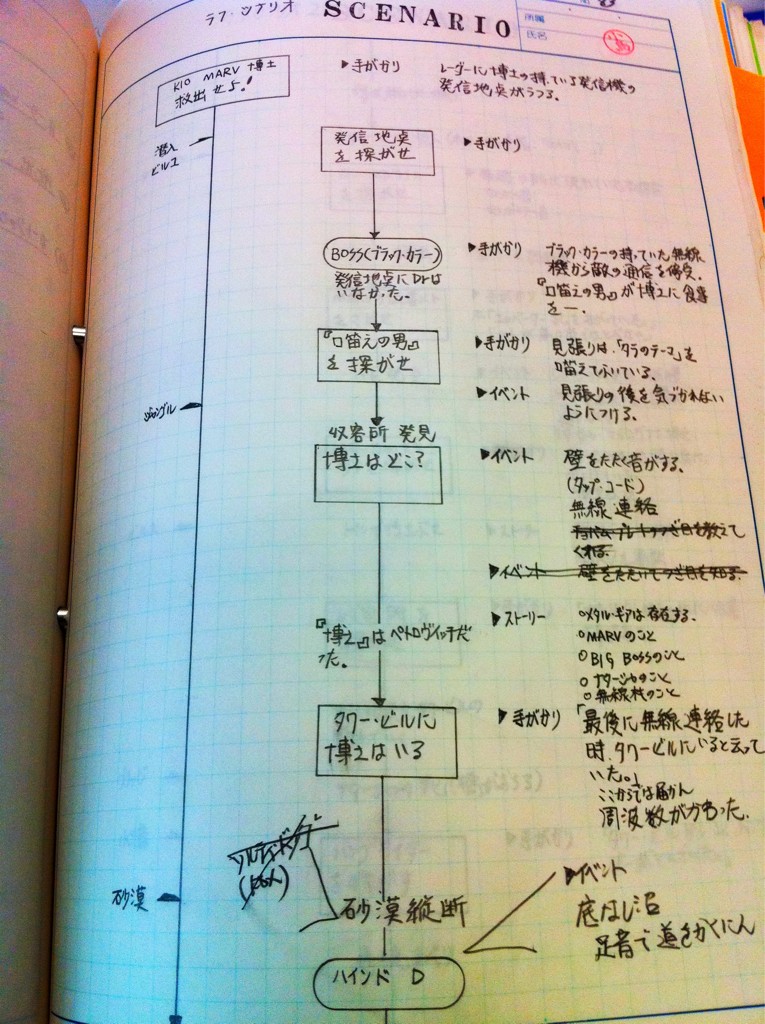 ラフ・シナリオ
SCENARIO
所属
氏名
KIO MARV 博士
救出せよ!
▶手がかり
レーダーに博士の持っている発信機の
発信地点がうつる。
潜入
ビル1
発信地点
を探がせ
▶手がかり
BOSS(ブラック・カラー)
発信地点にDrは
いなかった。
▶手がかり
ブラック・カラーの持っていた無線
機から敵の通信を傍受。
『口笛えの男』が博士に食事
を―.
『口笛えの男』
を探がせ
▶手がかり
見張りは、「タラのテーマ」を
口笛えでふいている。
▶イベント
見張りの後を気づかれない
ようにつける。
ジャングル
収容所 発見
博士はどこ?
▶イベント
壁をたたく音がする。
(タップ・コード)
無線連絡
くれる.
▶イベント 壁をたたいてつぎ目を知る.
『博士』はペトロヴィッチだ
った。
▶ストーリー
○メタル・ギアは存在する.
○MARVのこと
○BIG BOSSのこと
○ナターシャのこと
○無線機のこと
タワー・ビルに
博士はいる
▶手がかり
「最後に無線連絡した
時、タワービルにいると云って
いた。」
ここからでは届かん
周波数がかわった.
砂漠
砂漠縦断
▶イベント
底なし沼
足音で道をかくにん
ハインド D